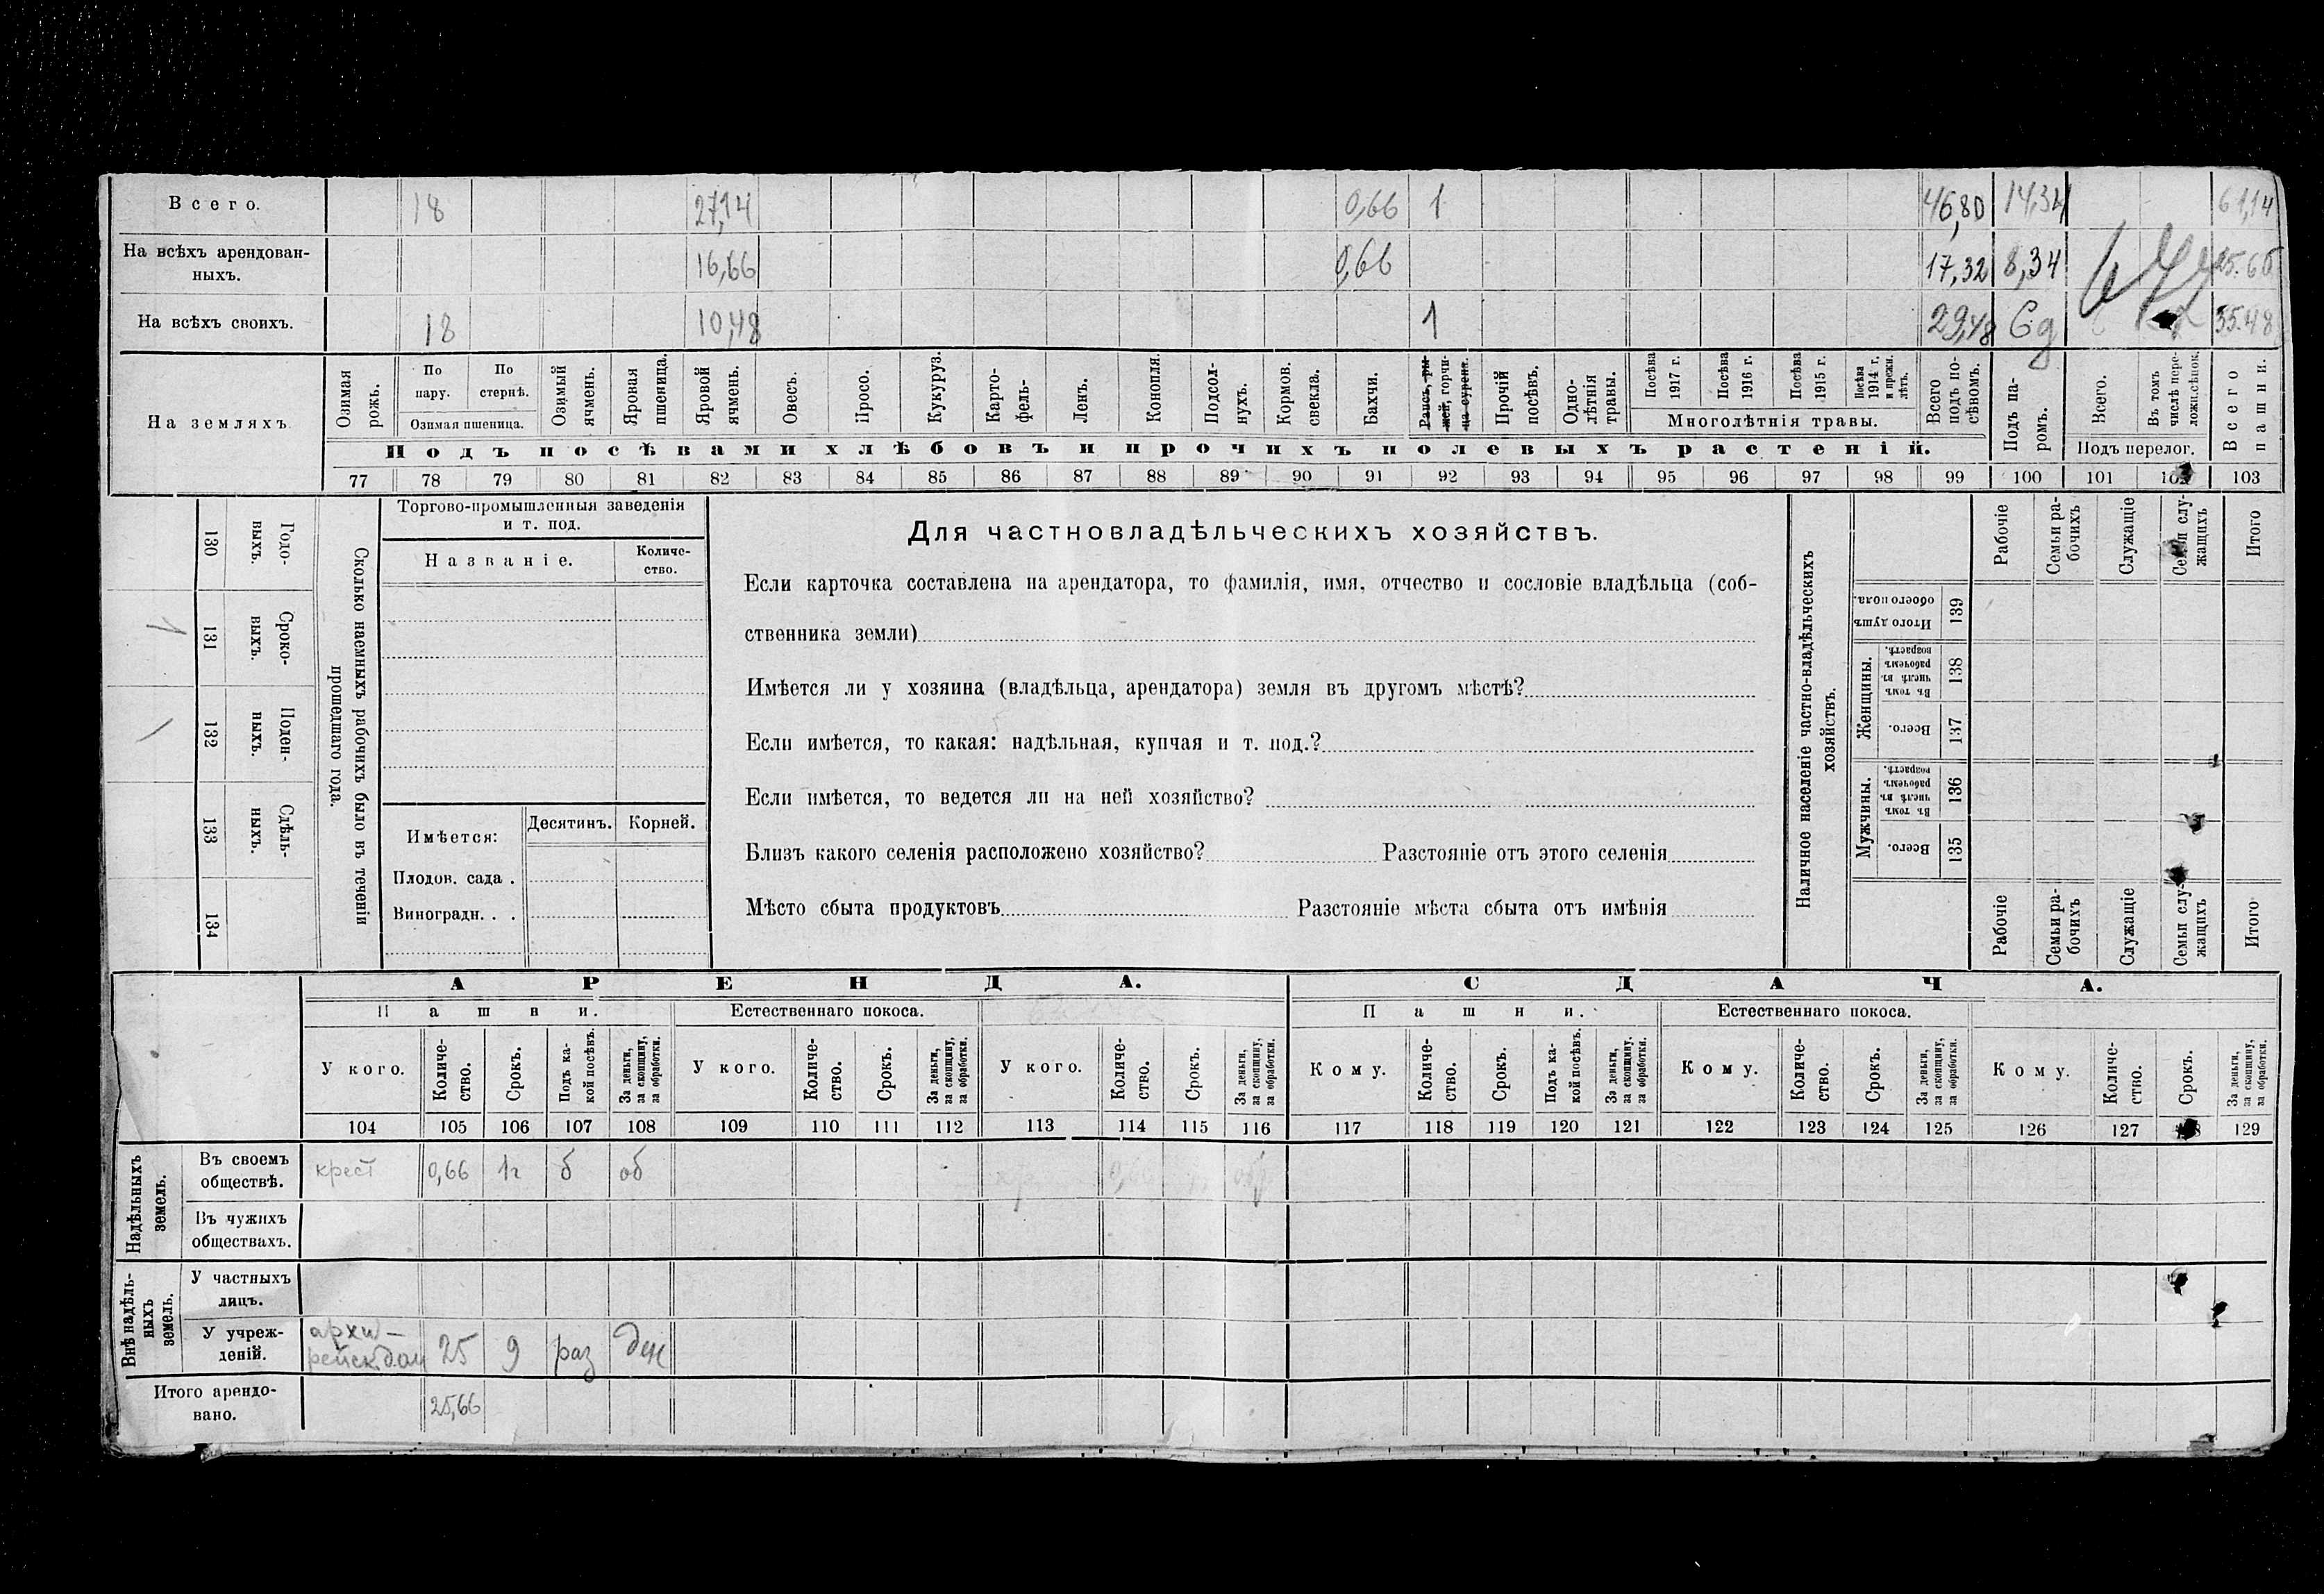 Всего. 18 27,14 0,66 1 46,80 14,34 61,14
На всѣхъ арендован-
ныхъ. 16,66 0,66 17,32 8,34 25.66
На всѣхъ своихъ. 18 10,48 1 29,48 35.48
На земляхъ.
Озимая рожь.
По пару.
По стернѣ.
Озимая пшеница.
Озимый ячмень.
Яровая пшеница.
Яровой ячмень.
Овесъ.
Просо.
Кукуруз.
Карто-
фель-
Ленъ.
Конопля.
Подсол-
нухъ.
Кормов. свекла.
Бахчи.
Рапсъ, ры-
жей, горчи-
ца сурепа.
Прочій посѣвъ.
Одно-
лѣтнія
травы.
Посѣва 1917 г.
Посѣва 1916 г.
Посѣва 1915 г.
Посѣва 1914 г. и прежн. лѣтъ.
Многолѣтнія травы.
Всего подъ по-
сѣвомъ.
Подъ па-
ромъ.
Всего.
Въ томъ числѣ пере-
ложн.сѣнок.
Подъ перелог.
Всего пашни.
Подъ посѣвами хлѣбовъ и прочихъ полевыхъ растеній.
77 78 79 80 81 82 83 84 85 86 87 88 89 90 91 92 93 94 95 96 97 98 99 100 101 102 103
130 Годо-
выхъ.
131 Сроко-
выхъ.
132 Поден-
ныхъ.
133 Сдѣль-
ныхъ.
134
Сколько наемныхъ рабочихъ было въ теченіи
прошедшаго года.
Торгово-промышленныя заведенія
и т. под.
Названіе.
Количе-
ство.
Имѣется: Десятинъ. Корней.
Плодов. сада .
Виноградн. . .
Для частновладѣльческихъ хозяйствъ.
Если карточка составлена на арендатора, то фамилія, имя, отчество и сословіе владѣльца (соб-
ственника земли)
Имѣется ли у хозяина (владѣльца, арендатора) земля въ другомъ мѣстѣ?
Если имѣется, то какая: надѣльная, купчая и т. под.?
Если имѣется, то ведется ли на ней хозяйство?
Близъ какого селенія расположено хозяйство? Разстояніе отъ этого селенія
Мѣсто сбыта продуктовъ Разстояніе мѣста сбыта отъ имѣнія
Наличное населеніе частно-владѣльческихъ
хозяйствъ.
Рабочіе
Семьи ра-
бочихъ
Служащіе
Семьи слу-
жащихъ
Итого
Итого душъ обоего пола. 139
Женщины.
Въ томъ числѣ въ рабочемъ возрастѣ. 138
Всего. 137
Мужчины.
Въ томъ числѣ въ рабочемъ возрастѣ. 136
Всего. 135
Рабочіе
Семьи ра-
бочихъ
Служащіе
Семьи слу-
жащихъ
Итого
АРЕНДА. СДАЧА.
Пашни. Естественнаго покоса. Пашни. Естественнаго покоса.
У кого.
Количе-
ство.
Срокъ.
Подъ ка-
кой посѣвъ.
За деньги,
за скопщину,
за обработки.
У кого.
Количе-
ство.
Срокъ.
За деньги,
за скопщину,
за обработки.
У кого.
Количе-
ство.
Срокъ.
За деньги,
за скопщину,
за обработки.
Кому.
Количе-
ство.
Срокъ.
Подъ ка-
кой посѣвъ.
За деньги,
за скопщину,
за обработки.
Кому.
Количе-
ство.
Срокъ.
За деньги,
за скопщину,
за обработки.
Кому.
Количе-
ство.
Срокъ.
За деньги,
за скопщину,
за обработки.
104 105 106 107 108 109 110 111 112 113 114 115 116 117 118 119 120 121 122 123 124 125 126 127 128 129
Надѣльныхъ
земель.
Въ своемъ
обществѣ. крест 0,66 1г б об
Въ чужихъ
обществахъ.
Внѣ надѣль-
ныхъ
земель.
У частныхъ
лицъ.
У учреж-
деній. архи-
рейск.дом 25 9 раз ден
Итого арендо-
вано. 25,66